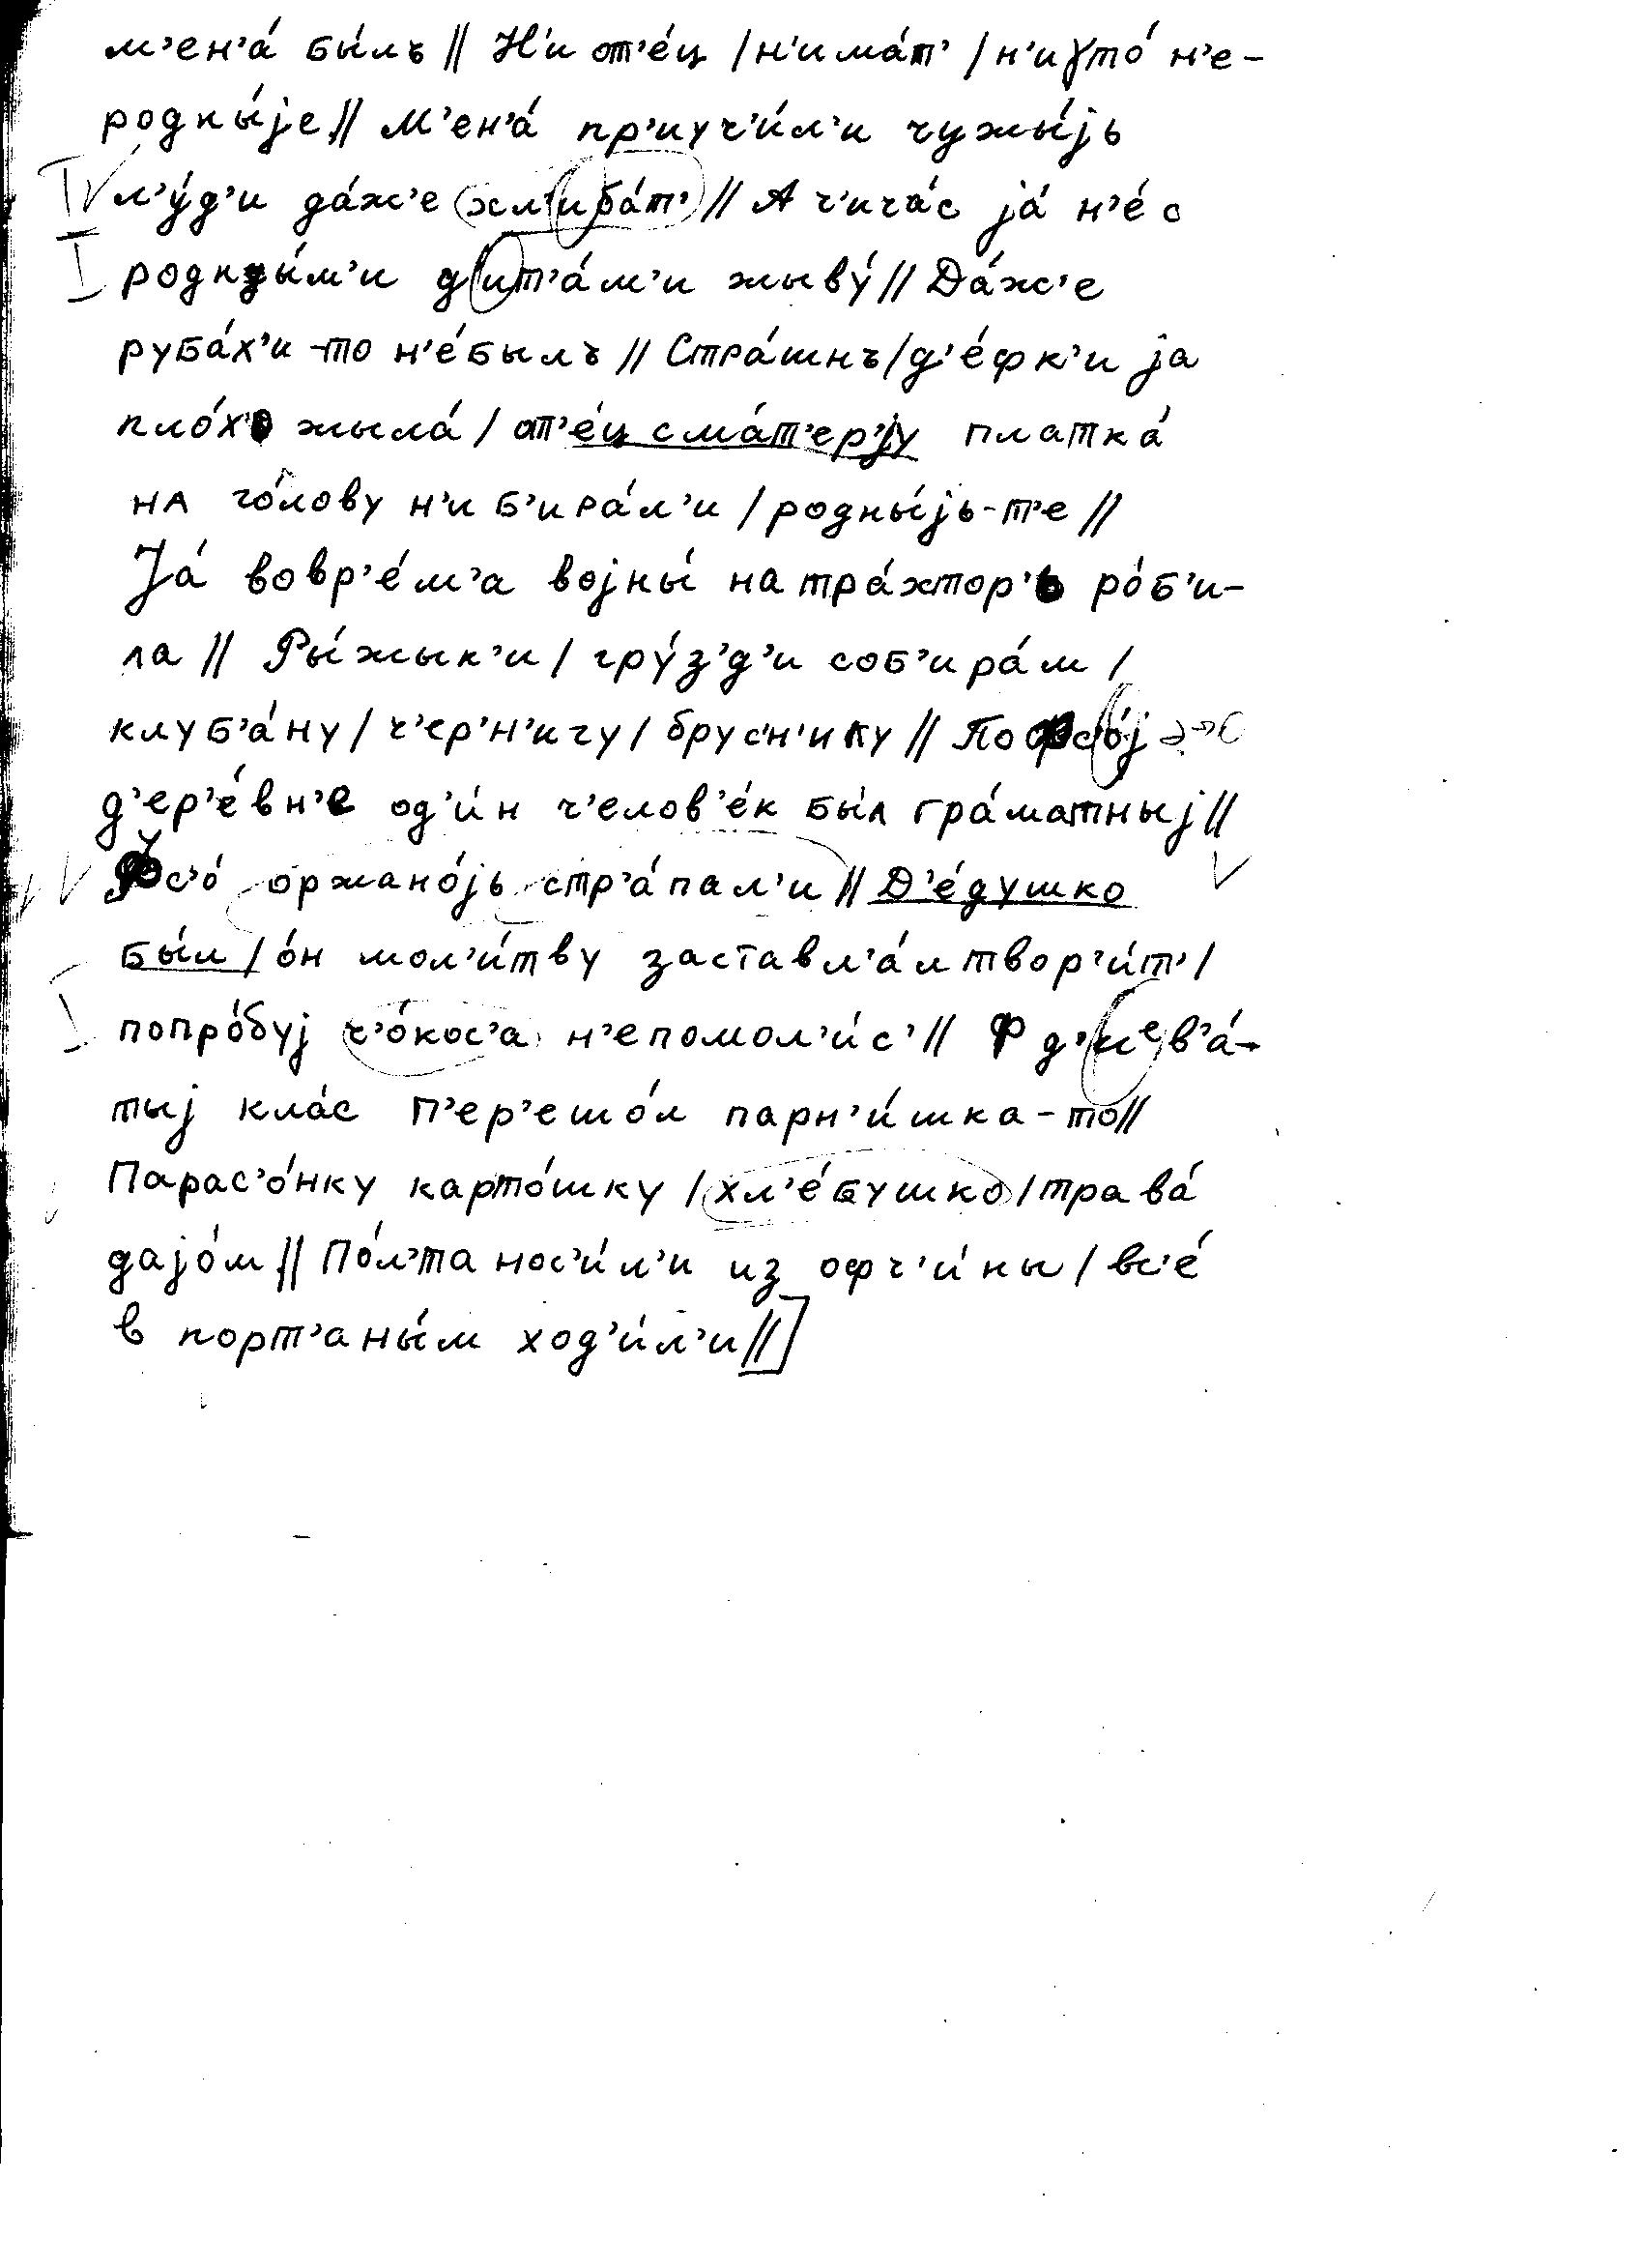 м'ен'а́ бы́лъ // Н'и от'е́ц / н'има́т' / н'иɣто́ н'е-
родны́jе // М'ен'а́ пр'иуч'и́л'и чужы́jь
IV л'у́д'и да́ж'е хл'иба́т' // А ч'ича́с jа́ н'е́ с
I родны́м'и д'ит'а́м'и жыву́ // Да́ж'е
руба́х'и-то н'е́былъ // Стра́шнъ / д'е́фк'и jа
пло́хо жыла́ / от'е́ц сма́т'ер'jу платка́
на го́лову н'и б'ира́л'и / родны́jь-т'е //
Jа́ вовр'е́м'а воjны́ на тра́хтор'ь ро́б'и-
ла // Ры́жык'и / гру́з'д'и соб'ира́м /
клуб'а́ну / ч'ер'н'ичу / брус'н'ику // По фсо́j
д'ер'е́вн'е од'и́н ч'елов'е́к бы́л гра́матныj //
V Фс'о́ оржано́jь стр'а́пал'и // Д'е́душко V
бы́л / о́н мол'и́тву заставл'а́л твор'и́т' /
I попро́буj ч'о́кос'а н'епомол'и́с' // Ф д'иев'а́-
тыj кла́с п'ер'ешо́л парн'и́шка-то //
Парас'о́нку карто́шку / хл'е́бушко / трава́
даjо́м // По́л'та нос'и́л'и из офч'и́ны / вс'е́
в порт'аны́м ход'и́л'и //]